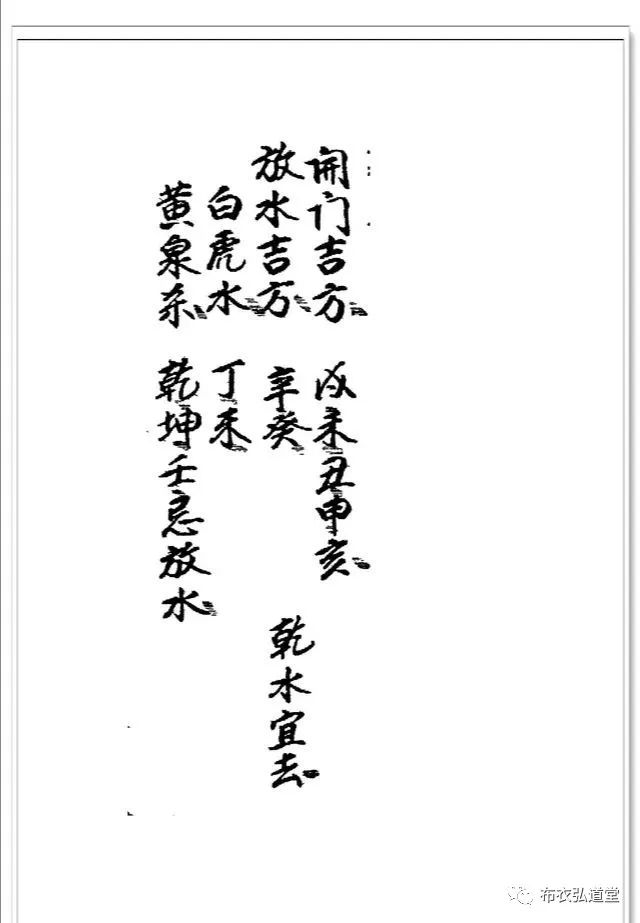 开门吉方、戌未丑申亥。
放水吉方、辛癸 乾水宜去。
白虎水、丁未
黄泉杀、乾坤壬忌放水、
布衣弘道堂